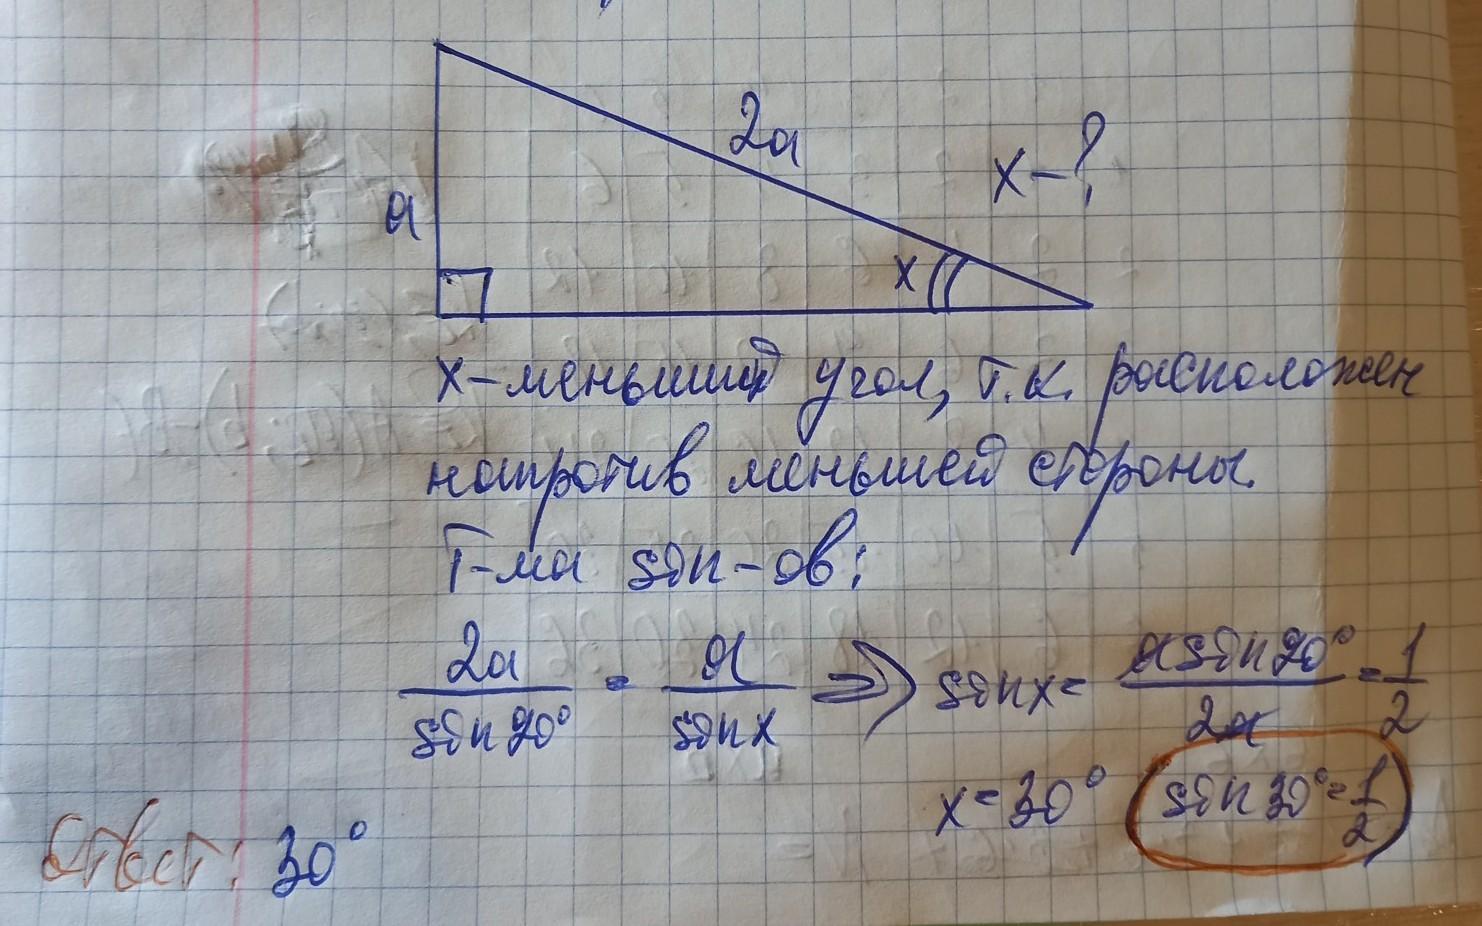 2a
x-?
a
x
x-меньший угол, т.к. расположен
напротив меньшей стороны.
Т-ма sin-ов:
2a/sin90° = a/sinx ⇒ sinx = a sin90°/2a = 1/2
x=30° sin30°=1/2
Ответ: 30°